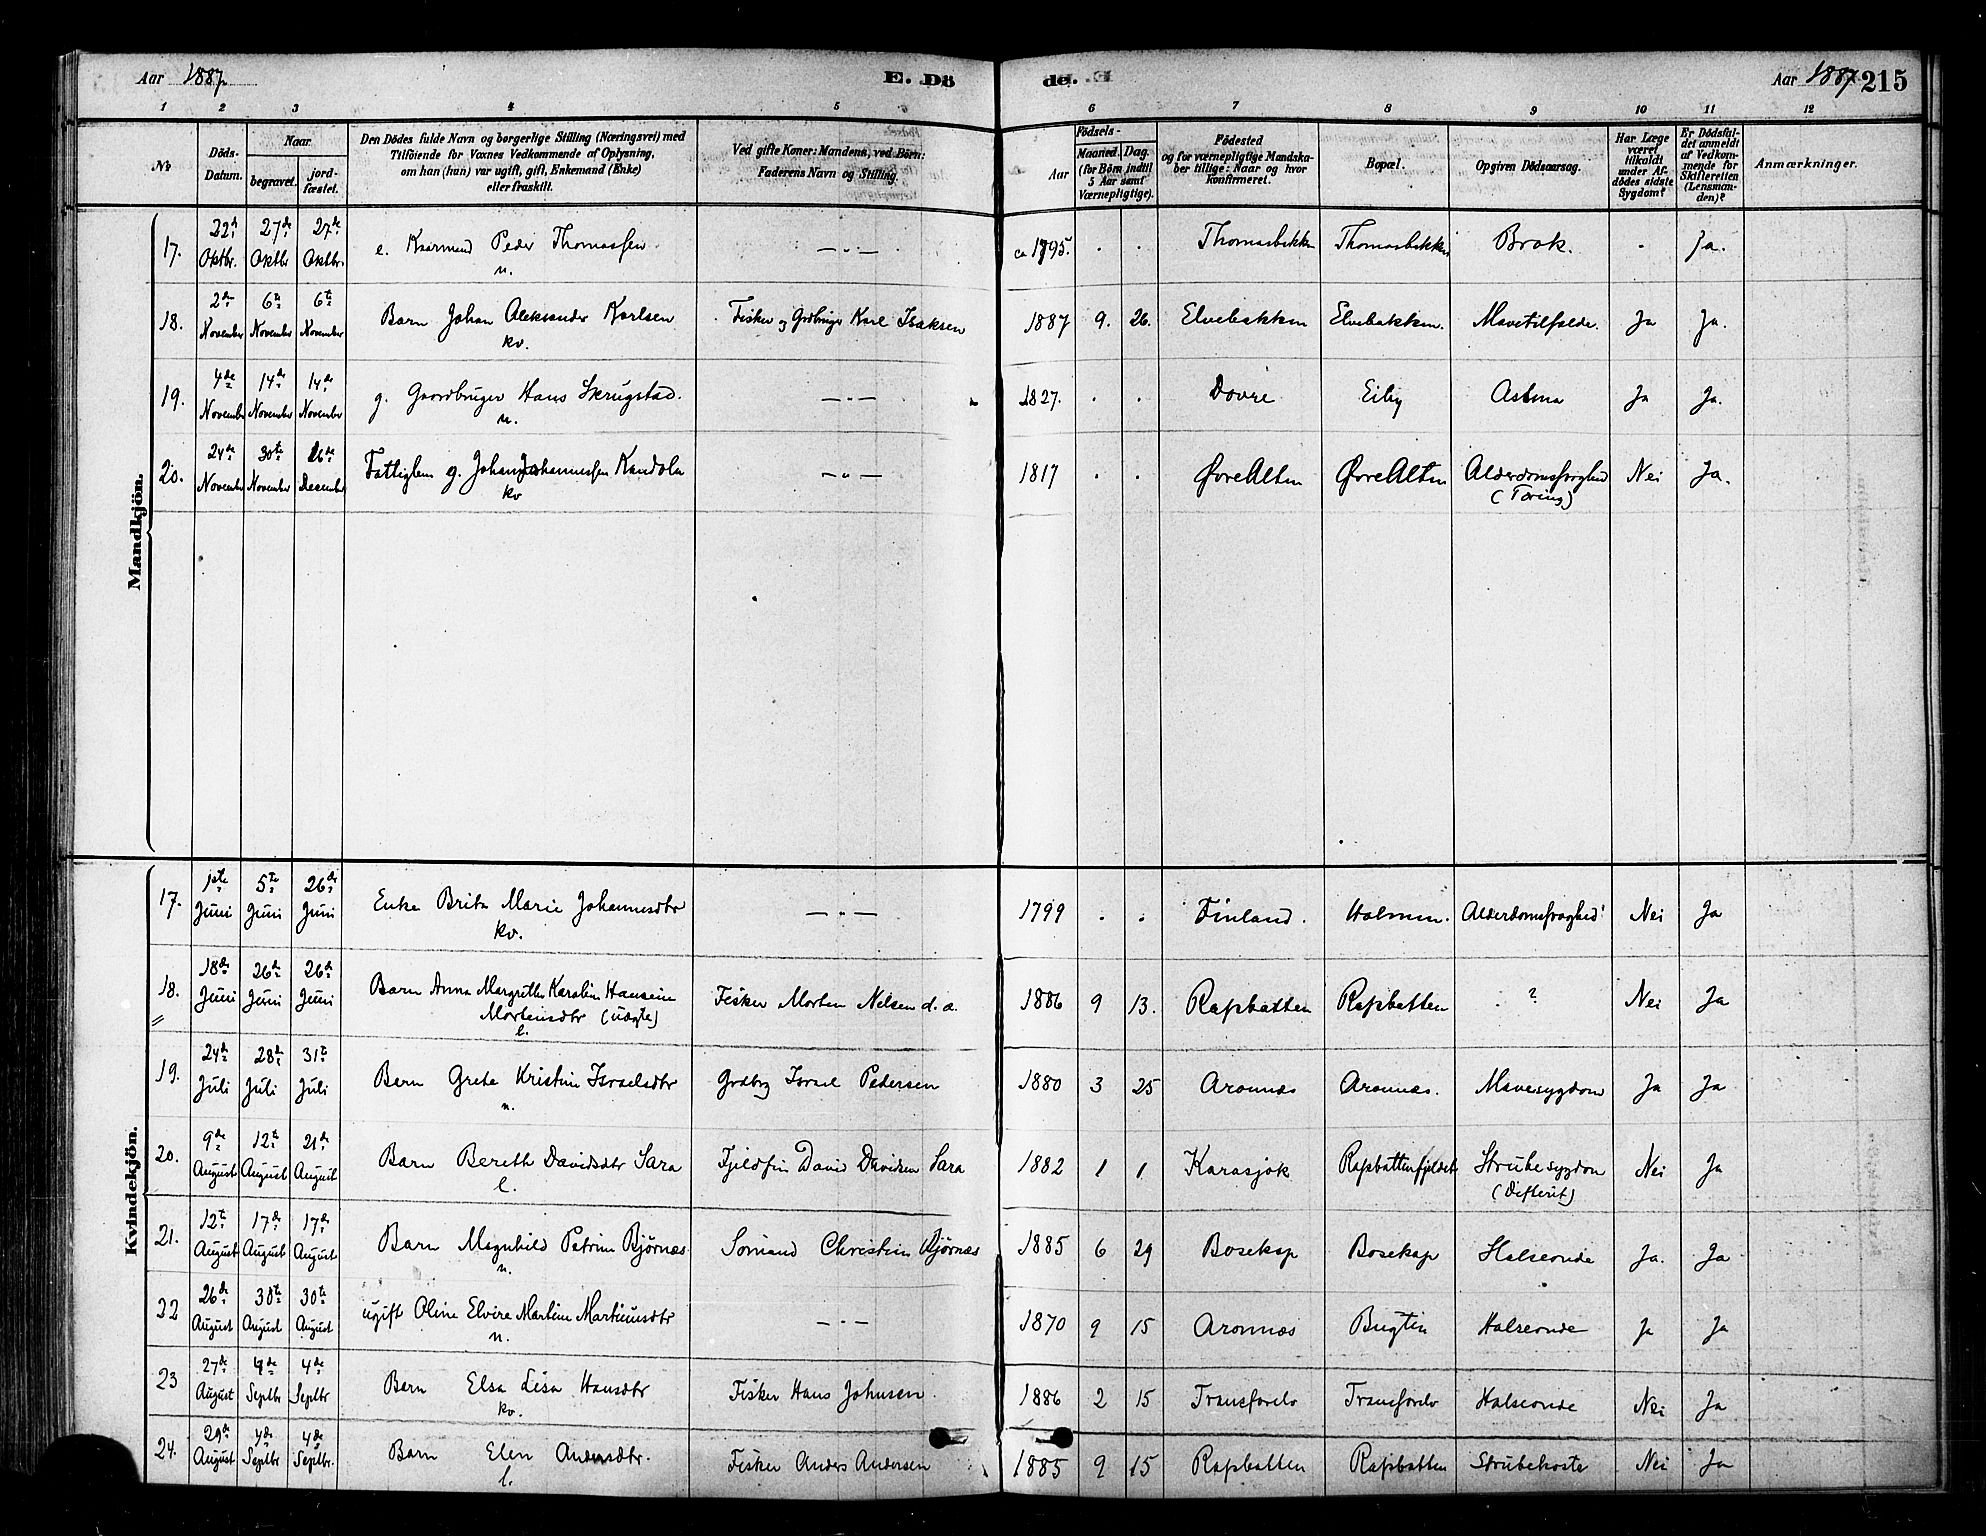 Aar 1887 E. Dö de. Aar 1887 215
1 2 3 4 5 6 7 8 9 10 11 12
№ Döds-Datum. Naar begravet. jord-fæstet. Den Dödes fulde Navn og borgerlige Stilling (Næringsvei) med Tilföiende for Voxnes Vedkommende af Oplysning, om han (hun) var ugift, gift, Enkemand (Enke) eller fraskilt. Ved gifte Koner: Mandens, ved Börn: Faderens Navn og Stilling. Födsels- Aar Maaned Dag (for Börn indtil 5 Aar samt Værnepligtige). Födested og for værnepligtige Mandskaber tillige: Naar og hvor konfirmeret. Bopæl. Opgiven Dödsaarsag. Har Læge været tilkaldt under Afdödes sidste Sygdom? Er Dödsfuldet anmeldt af Vedkommende for Skifteretten (Lensmanden)? Anmærkninger.
Mandkjön.
17. 22d Oktbr. 27de Oktbr 27de Oktbr. e. Kaarmand Peder Thomassen n. — " — ca 1795. . . Thomasbakken Thomasbakken Brok. . Ja.
18. 2den November 6te November 6te November Barn Johan Aleksander Karlsen kv. Fisker og Grdbruger Karl Isaksen 1887 9. 26. Elvebakken Elvebakken. Mavetilfælde. Ja Ja.
19. 4de November 14de November 14de November g. Gaardbruger Hans Skrugstad. n. — " — 1827. . . Dovre Eiby Astma Ja Ja.
20. 24de November 30te November 26de December Fattiglem g. Johan Johannessen Kandola kv — " — 1817 . . Øvre Alten Øvre Alten Alderdomssvaghed (Tæring) Nei Ja.
Kvindekjön.
17. 1ste Juni 5te Juni 26de Juni Enke Brita Marie Johannesdtr kv. — " — 1799 . . Finland. Holmen. Alderdomssvaghed Nei Ja
18. 18de Juni 26de Juni 26de Juni Barn Anna Margrethe Karoline Hansine Mortensdtr (uægte) l. Fisker Morten Nielsen d. a. 1886 9 13. Rafsbotten Rafsbotten ? Nei Ja
19. 24de Juli 28de Juli 31te Juli Barn Grete Kristine Israelsdtr n. Grdbrg Israel Pedersen 1880 3 25 Aronnæs Aronnæs. Mavesygdom Ja Ja
20. 9de August 12te August 21de August Barn Bereth Davidsdtr Sara l. Fjeldfin David Davidsen Sara 1882 1 1 Karasjok Rafsbottenfjeldet Strubesygdom (Difterit) Nei Ja
21. 12te August 17de August 17de August Barn Magnhild Petrine Bjørnæs. n. Sømand Christian Bjørnæs 1885 6 29 Bosekop Bosekop Halseonde Ja. Ja
22 26de August 30te August 30te August ugift Oline Elvire Martine Martinusdtr n. — " — 1870 9 15 Aronnæs Bugten Halseonde Ja Ja
23 27de August 4de Septbr 4de Septbr Barn Elsa Lisa Hansdtr kv. Fisker Hans Johnsen. 1886 2 15 Tranfarelv Tranfarelv Halseonde Nei Ja
24. 29de August 4de Septbr 4de Septbr. Barn Elen Andersdtr. l. Fisker Anders Andersen 1885 9 15 Rafsbotten Rafsbotten Strubehoste Nei Ja